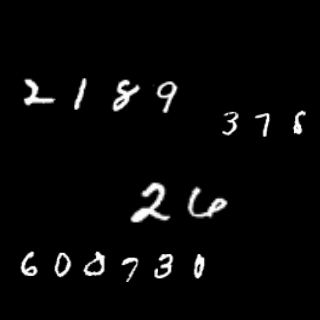 2189
378
26
608730